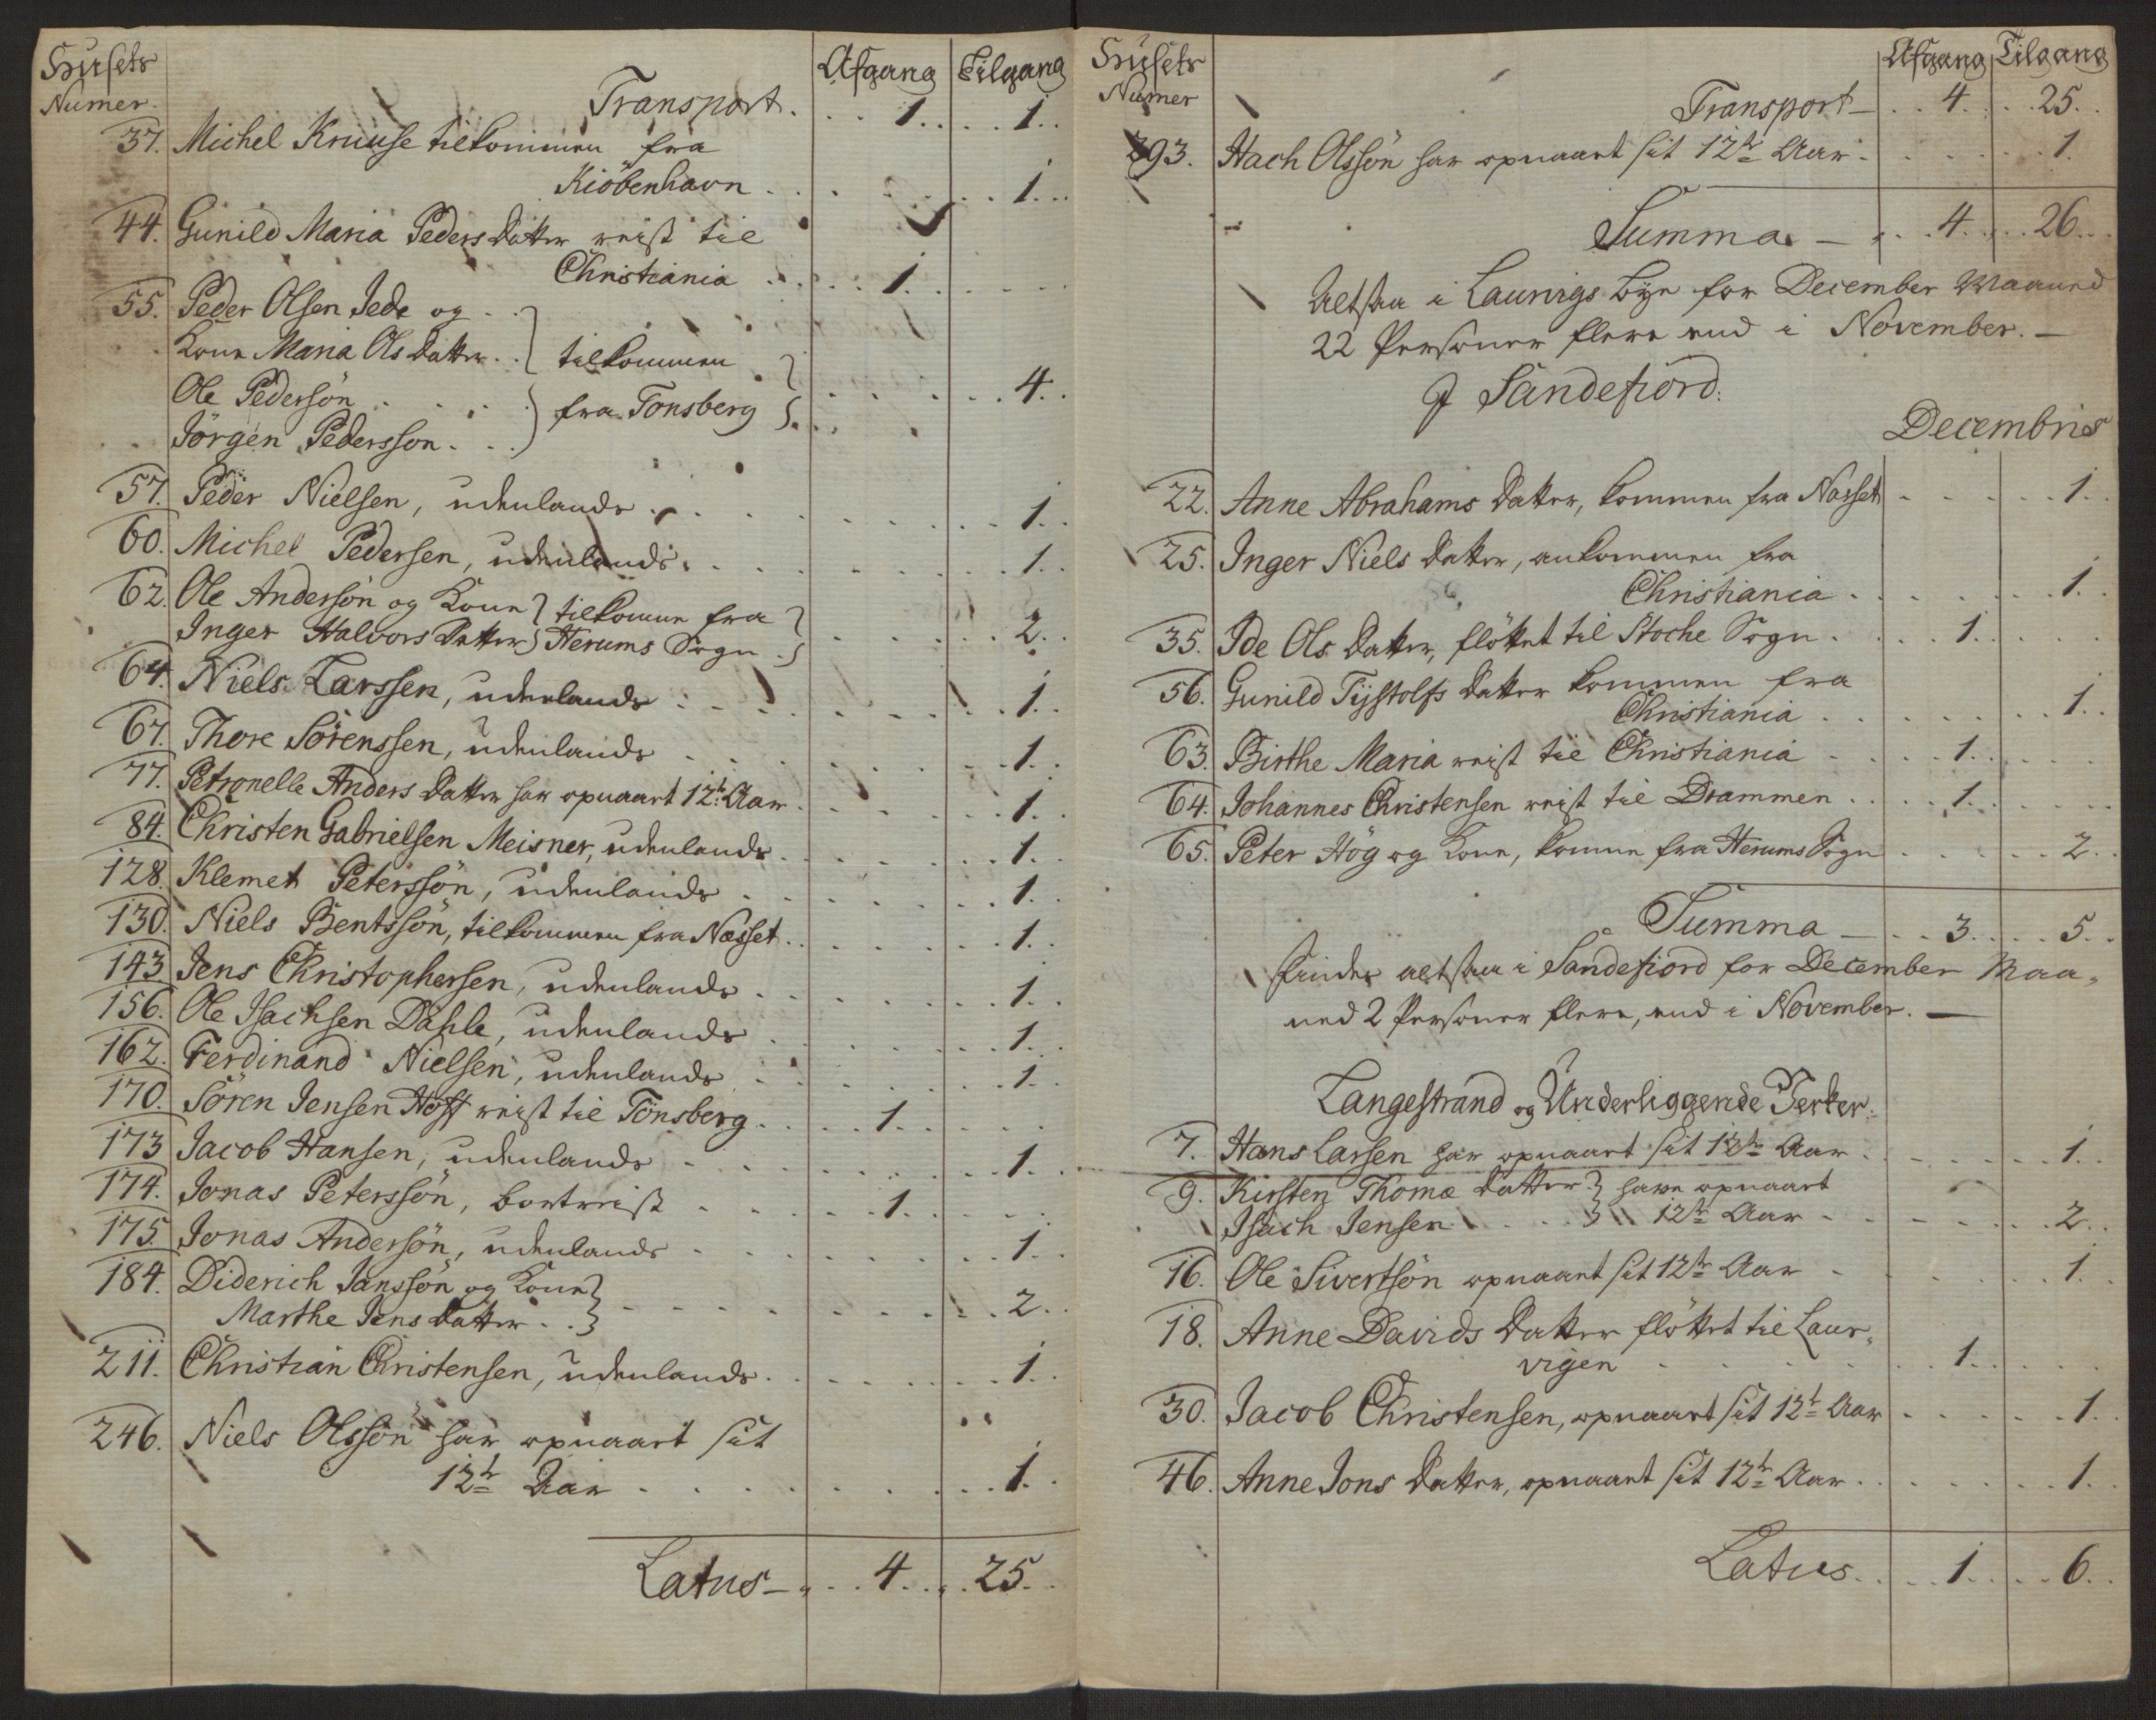 Husets Numer. Afgang Tilgang
Transport. 1. 1.
37. Michel Kruuse tilkommen fra
Kiöbenhavn 1.
44. Gunild Maria Peders Datter reist til
Christiania 1.
55. Peder Olsen Jede og
Kone Maria Ols Datter tilkommen
Ole Pedersön fra Tonsberg 4.
Jörgen Pedersson
57. Peder Nielsen, udenlands 1.
60. Michel Pedersen, udenlands 1.
62. Ole Andersön og Kone tilkomne fra
Inger Halvors Datter Herums Sogn 2.
64. Niels Larssen, udenlands 1.
67. Thore Sörenssen, udenlands 1.
77. Petronelle Anders Datter har opnaaet 12te Aar 1.
84. Christen Gabrielsen Meisner, udenlands 1.
128. Klemet Peterssön, udenlands 1.
130. Niels Bentssön, tilkommen fra Næsset 1.
143. Jens Christophersen, udenlands 1.
156. Ole Isachsen Dahle, udenlands 1.
162. Ferdinand Nielsen, udenlands 1.
170. Sören Jensen Hoff reist til Tönsberg 1.
173 Jacob Hansen, udenlands 1.
174. Jonas Peterssön, bortreist 1.
175. Jonas Andersön, udenlands 1.
184. Diderich Janssön og Kone
Marthe Jens Datter 2.
211. Christian Christensen, udenlands 1.
246. Niels Olssön har opnaaet sit
12te Aar 1.
Latus 4. 25.
Husets Numer Afgang Tilgang
Transport 4. 25.
293. Hach Olssön har opnaaet sit 12te Aar 1.
Summa 4. 26.
Altsaa i Laurvigs Bye for December Maaned
22 Personer flere end i November.
I Sandefiord.
Decembris
22. Anne Abrahams Datter, kommen fra Næsset 1.
25. Inger Niels Datter, ankommen fra
Christiania 1.
35. Ide Ols Datter, flöttet til Stoche Sogn 1.
56. Gunild Tystolfs Datter kommen fra
Christiania 1.
63. Birthe Maria reist til Christiania 1.
64. Johannes Christensen reist til Drammen 1.
65. Peter Hög og Kone, komne fra Herums Sogn 2.
Summa 3. 5.
findes altsaa i Sandefiord for December Maa-
ned 2 Personer flere, end i November.
Langestrand og Underliggende Verker.
7. Hans Larsen har opnaaet sit 12te Aar 1.
9. Kirsten Thomæ Datter have opnaaet
Isach Jensen 12te Aar 2.
16. Ole Sivertsön opnaaet sit 12te Aar 1.
18. Anne Davids Datter flöttet til Laur-
vigen 1.
30. Jacob Christensen, opnaaet sit 12te Aar 1.
46. Anne Jons Datter, opnaaet sit 12te Aar 1.
Latus 1. 6.